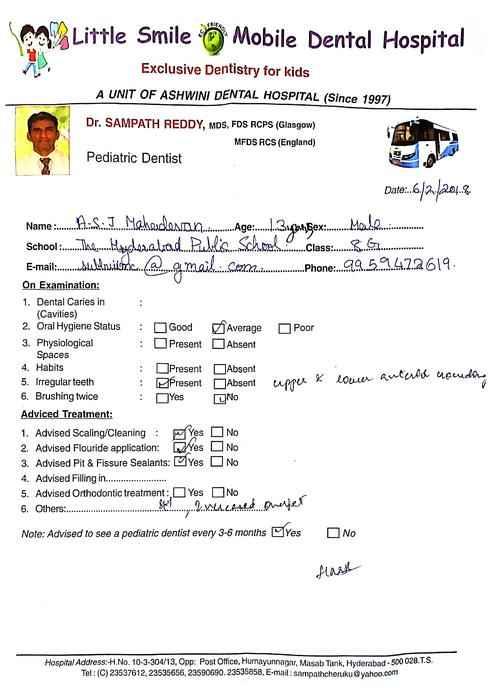 Little Smile ECO FRIENDLY Mobile Dental Hospital
Exclusive Dentistry for kids
A UNIT OF ASHWINI DENTAL HOSPITAL (Since 1997)
Dr. SAMPATH REDDY, MDS, FDS RCPS (Glasgow)
MFDS RCS (England)
Pediatric Dentist
Date:..6/2/2018
Name:.....A.S.J Mahadevan.....Age:...13 yrs Sex:...Male
School:...The Hyderabad Public School...Class:...8 G
E-mail:......@gmail.com......Phone:..9959472619.
On Examination:
1. Dental Caries in :
(Cavities)
2. Oral Hygiene Status : Good Average Poor
3. Physiological : Present Absent
Spaces
4. Habits : Present Absent
5. Irregular teeth : Present Absent upper & lower anterior crowding
6. Brushing twice : Yes No
Adviced Treatment:
1. Advised Scaling/Cleaning : Yes No
2. Advised Flouride application: Yes No
3. Advised Pit & Fissure Sealants: Yes No
4. Advised Filling in......................
5. Advised Orthodontic treatment : Yes No
6. Others:..................... Increased overjet
Note: Advised to see a pediatric dentist every 3-6 months Yes No
Hospital Address:-H.No. 10-3-304/13, Opp: Post Office, Humayunnagar, Masab Tank, Hyderabad - 500 028.T.S.
Tel : (C) 23537612, 23535656, 23590690. 23535858, E-mail : sampathcheruku@yahoo.com